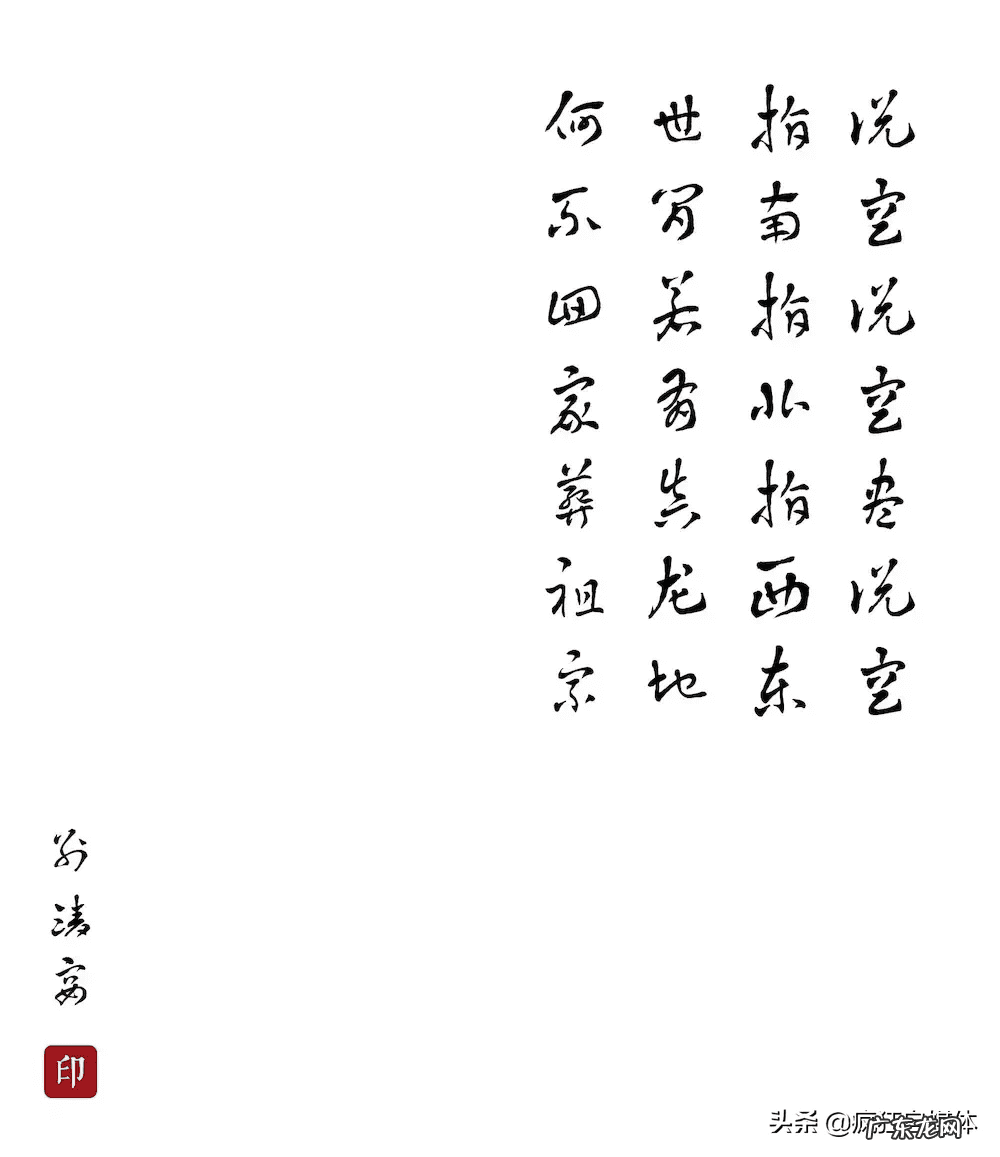 说空说空尽说空
指南指北指西东
世间若有真龙地
何不回家葬祖宗
印
头条 @疯
广东龙网